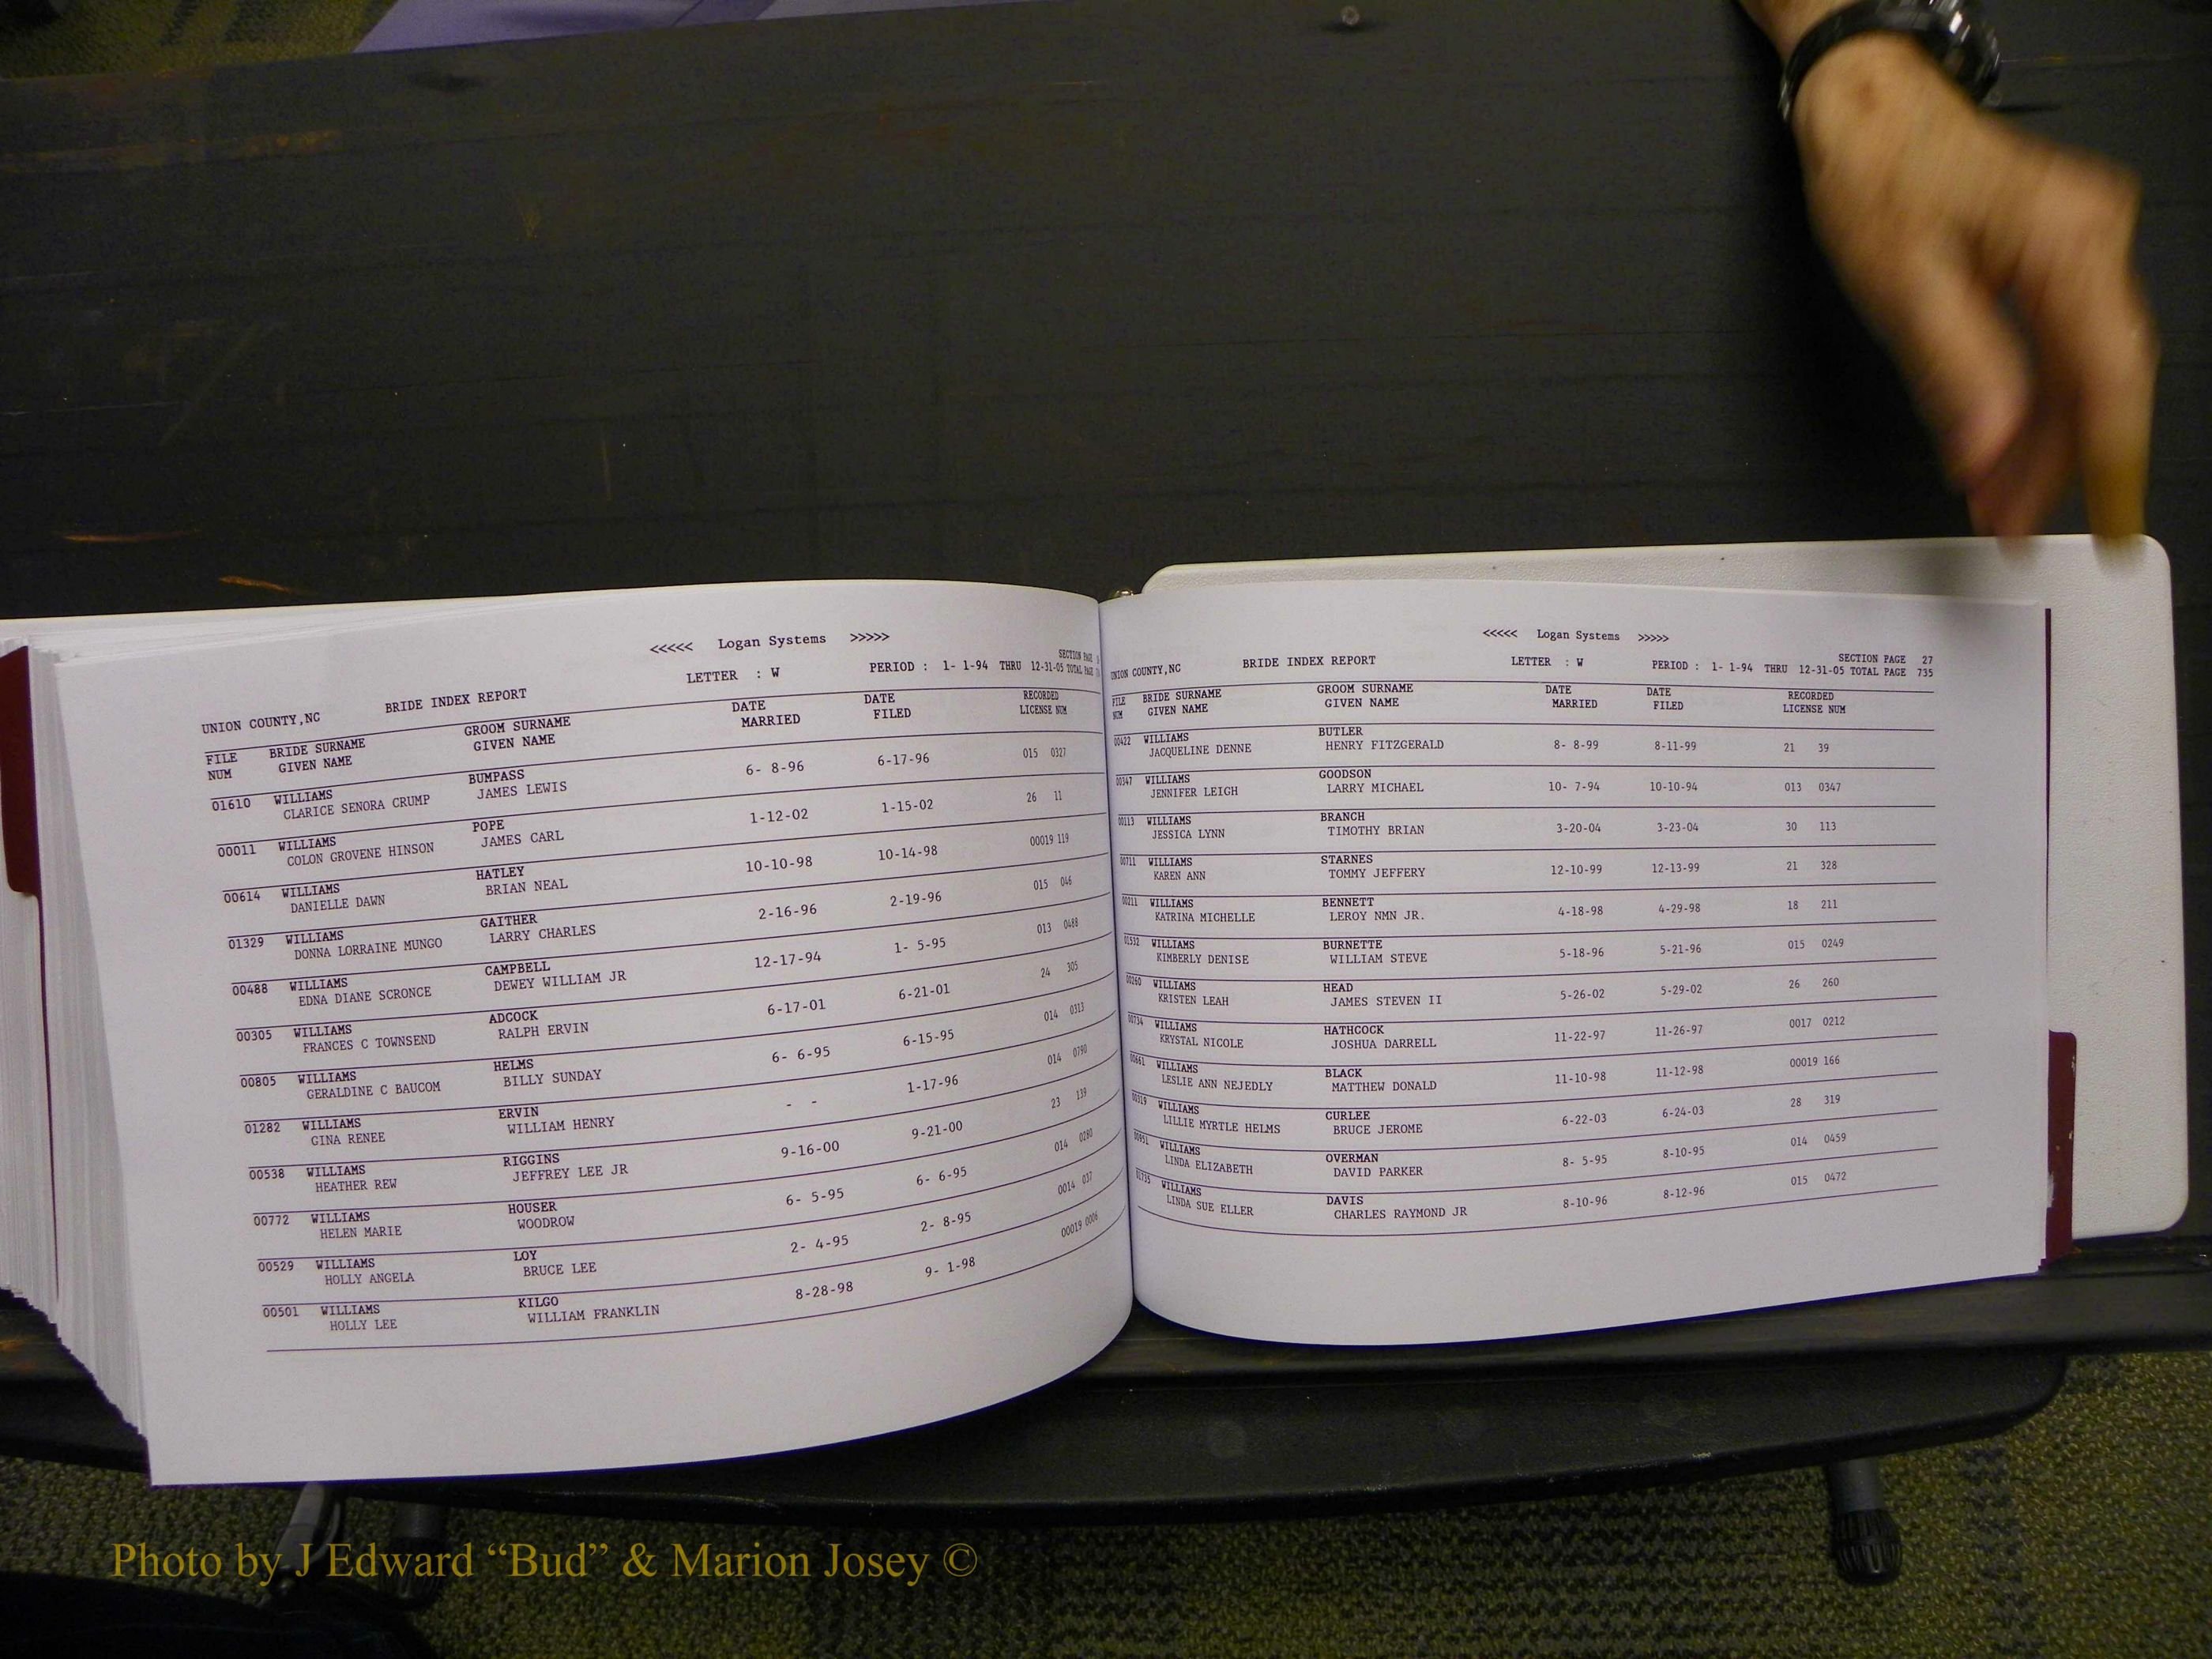 <<<<< Logan Systems >>>>>
UNION COUNTY,NC BRIDE INDEX REPORT LETTER : W PERIOD : 1- 1-94 THRU 12-31-05 SECTION PAGE
TOTAL PAGE
FILE BRIDE SURNAME GROOM SURNAME DATE DATE RECORDED
NUM GIVEN NAME GIVEN NAME MARRIED FILED LICENSE NUM
01610 WILLIAMS BUMPASS 6- 8-96 6-17-96 015 0327
CLARICE SENORA CRUMP JAMES LEWIS
00011 WILLIAMS POPE 1-12-02 1-15-02 26 11
COLON GROVENE HINSON JAMES CARL
00614 WILLIAMS HATLEY 10-10-98 10-14-98 00019 119
DANIELLE DAWN BRIAN NEAL
01329 WILLIAMS GAITHER 2-16-96 2-19-96 015 046
DONNA LORRAINE MUNGO LARRY CHARLES
00488 WILLIAMS CAMPBELL 12-17-94 1- 5-95 013 0488
EDNA DIANE SCRONCE DEWEY WILLIAM JR
00305 WILLIAMS ADCOCK 6-17-01 6-21-01 24 305
FRANCES C TOWNSEND RALPH ERVIN
00805 WILLIAMS HELMS 6- 6-95 6-15-95 014 0313
GERALDINE C BAUCOM BILLY SUNDAY
01282 WILLIAMS ERVIN - - 1-17-96 014 0790
GINA RENEE WILLIAM HENRY
00538 WILLIAMS RIGGINS 9-16-00 9-21-00 23 139
HEATHER REW JEFFREY LEE JR
00772 WILLIAMS HOUSER 6- 5-95 6- 6-95 014 0280
HELEN MARIE WOODROW
00529 WILLIAMS LOY 2- 4-95 2- 8-95 0014 037
HOLLY ANGELA BRUCE LEE
00501 WILLIAMS KILGO 8-28-98 9- 1-98 00019 0006
HOLLY LEE WILLIAM FRANKLIN
<<<<< Logan Systems >>>>>
UNION COUNTY,NC BRIDE INDEX REPORT LETTER : W PERIOD : 1- 1-94 THRU 12-31-05 SECTION PAGE 27
TOTAL PAGE 735
FILE BRIDE SURNAME GROOM SURNAME DATE DATE RECORDED
NUM GIVEN NAME GIVEN NAME MARRIED FILED LICENSE NUM
00422 WILLIAMS BUTLER 8- 8-99 8-11-99 21 39
JACQUELINE DENNE HENRY FITZGERALD
00347 WILLIAMS GOODSON 10- 7-94 10-10-94 013 0347
JENNIFER LEIGH LARRY MICHAEL
00113 WILLIAMS BRANCH 3-20-04 3-23-04 30 113
JESSICA LYNN TIMOTHY BRIAN
00711 WILLIAMS STARNES 12-10-99 12-13-99 21 328
KAREN ANN TOMMY JEFFERY
00211 WILLIAMS BENNETT 4-18-98 4-29-98 18 211
KATRINA MICHELLE LEROY NMN JR.
01532 WILLIAMS BURNETTE 5-18-96 5-21-96 015 0249
KIMBERLY DENISE WILLIAM STEVE
00260 WILLIAMS HEAD 5-26-02 5-29-02 26 260
KRISTEN LEAH JAMES STEVEN II
00734 WILLIAMS HATHCOCK 11-22-97 11-26-97 0017 0212
KRYSTAL NICOLE JOSHUA DARRELL
00661 WILLIAMS BLACK 11-10-98 11-12-98 00019 166
LESLIE ANN NEJEDLY MATTHEW DONALD
00319 WILLIAMS CURLEE 6-22-03 6-24-03 28 319
LILLIE MYRTLE HELMS BRUCE JEROME
00951 WILLIAMS OVERMAN 8- 5-95 8-10-95 014 0459
LINDA ELIZABETH DAVID PARKER
01735 WILLIAMS DAVIS 8-10-96 8-12-96 015 0472
LINDA SUE ELLER CHARLES RAYMOND JR
Photo by J Edward “Bud” & Marion Josey ©